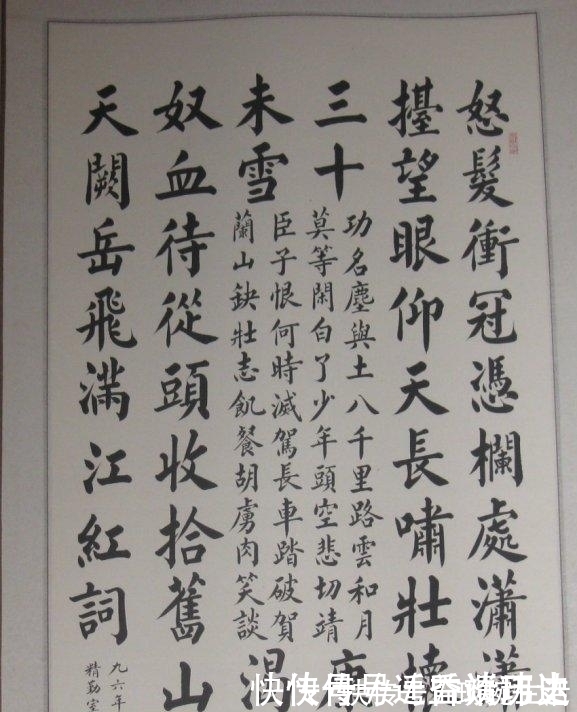 怒髮衝冠憑欄處瀟瀟
擡望眼仰天長嘯壯懷
三十
功名塵與土八千里路雲和月
莫等閑白了少年頭空悲切靖
康
未雪
臣子恨何時滅駕長車踏破賀
蘭山缺壯志飢餐胡虜肉笑談
渴
奴血待從頭收拾舊山
天闕岳飛滿江紅詞
九六年
精勤